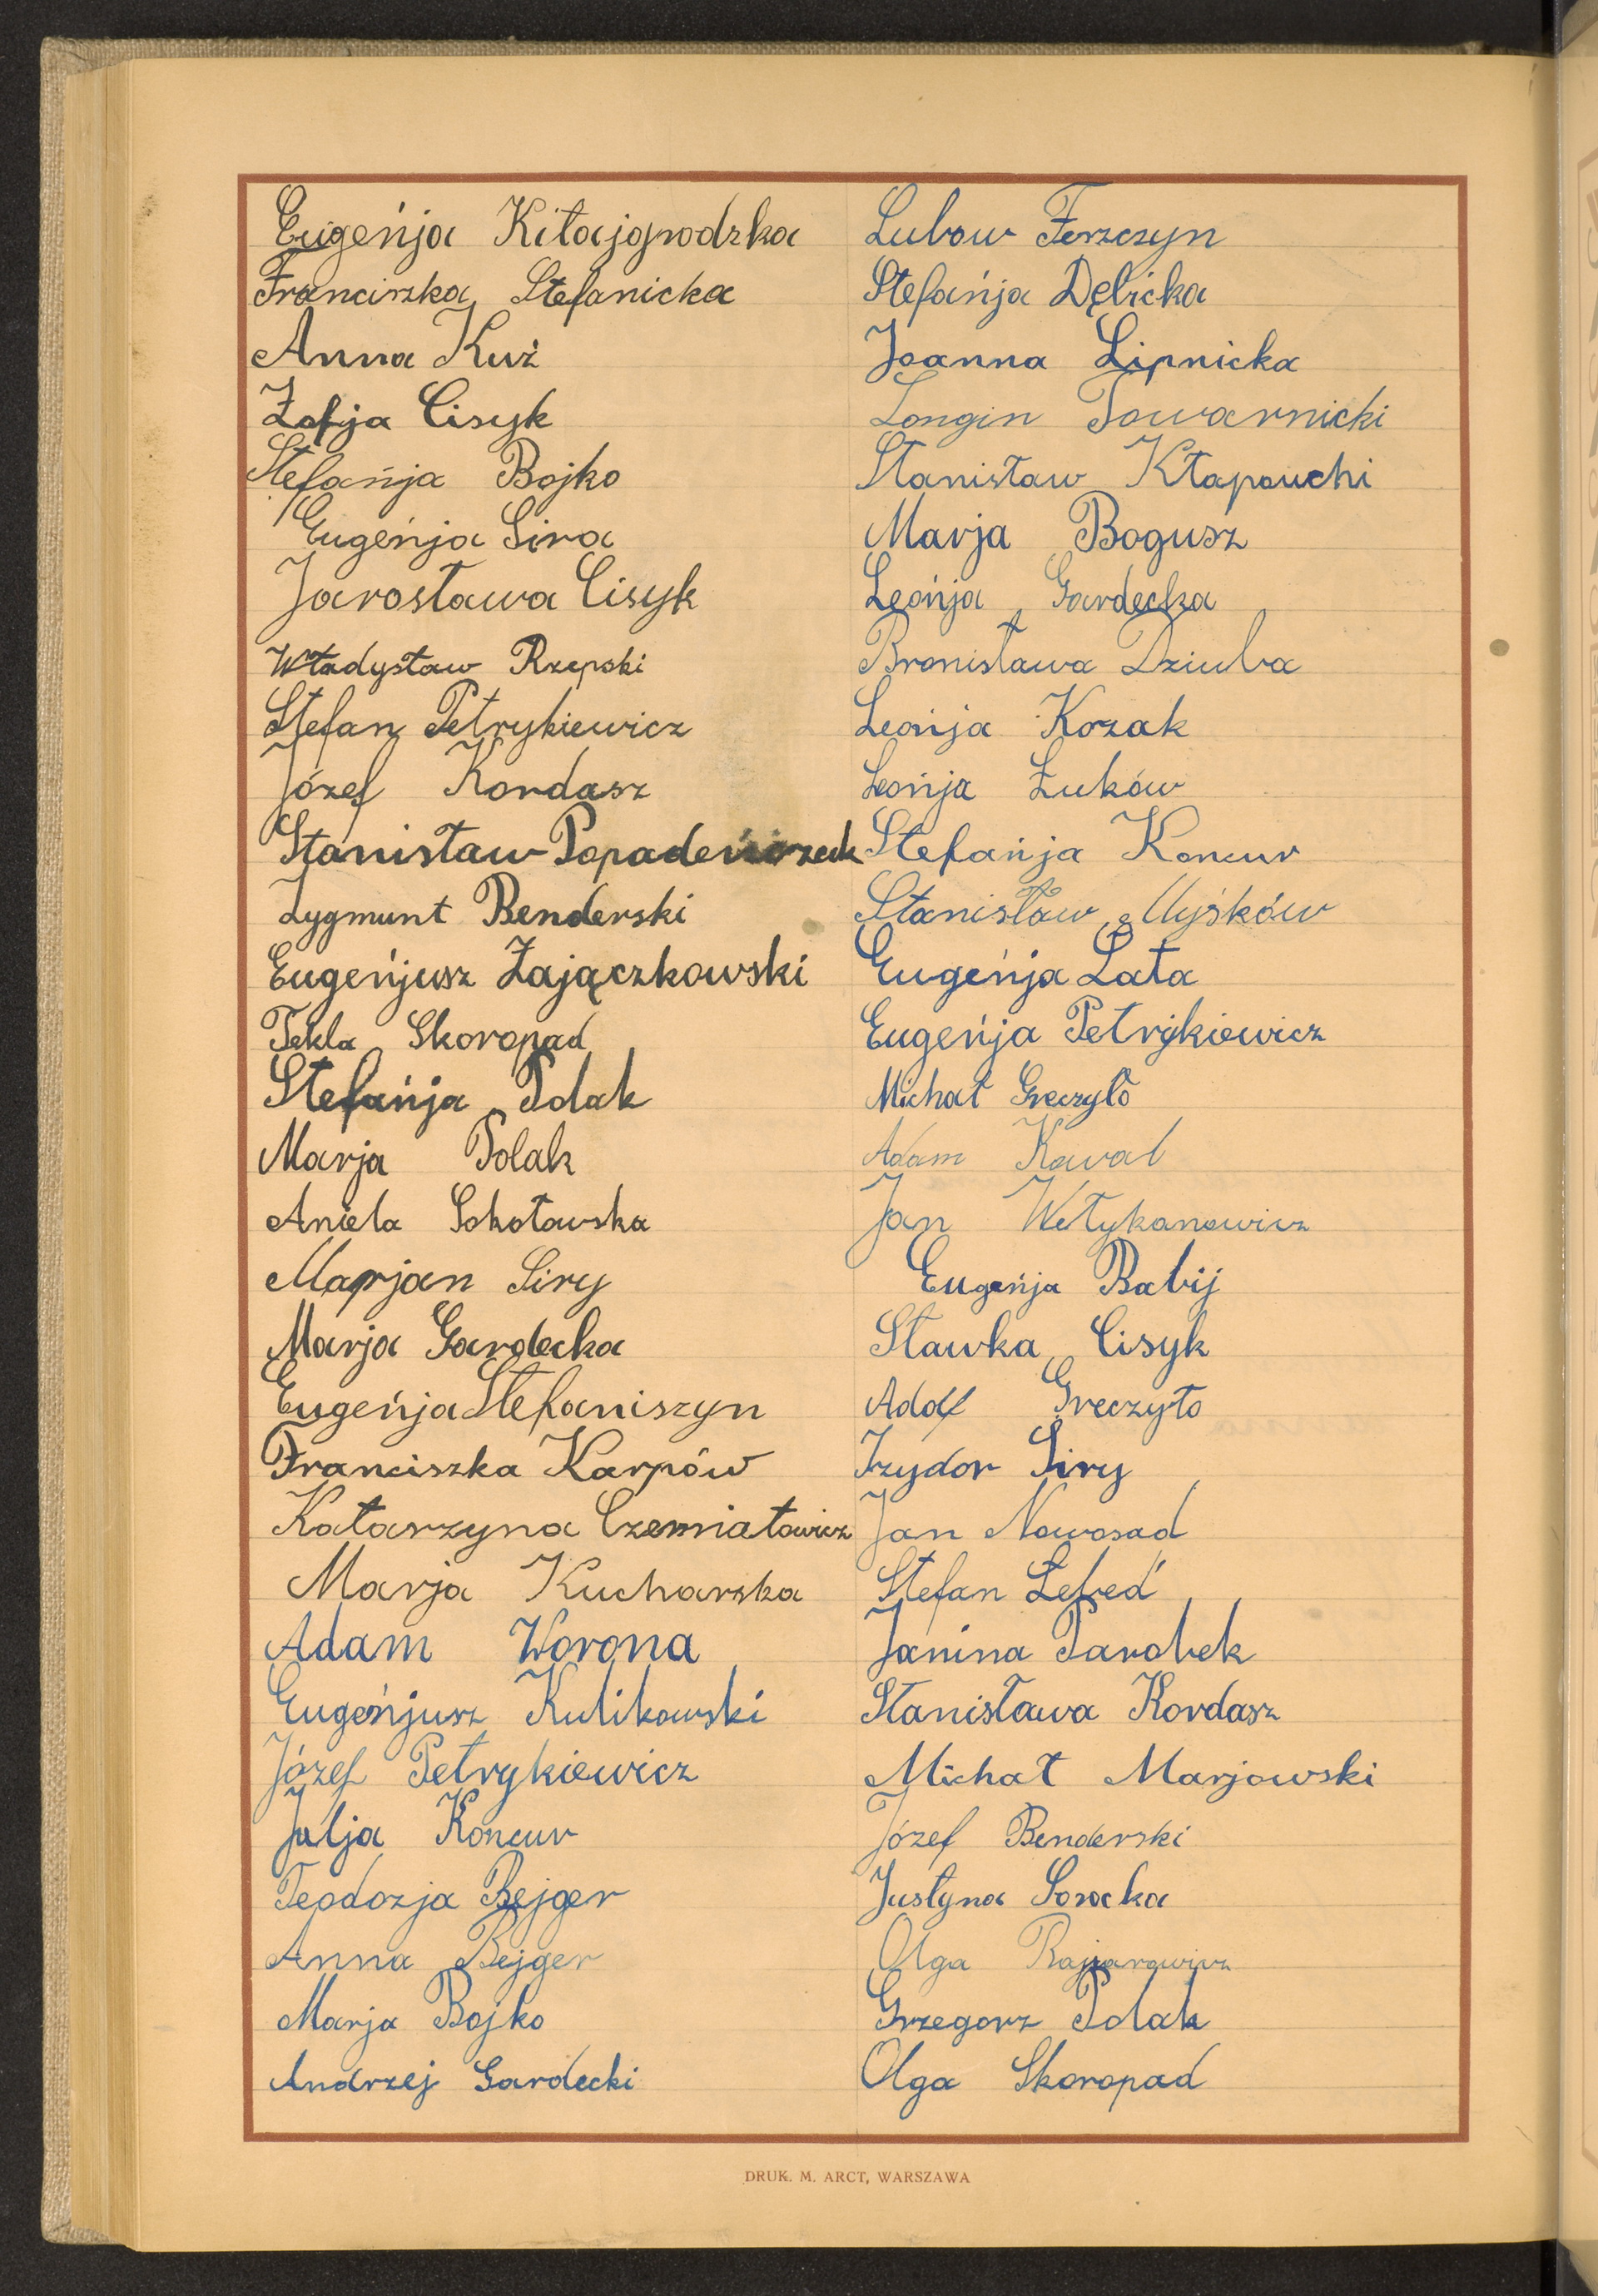 Eugeńja Kitajgrodzka
Franciszka Stefanicka
Anna Kuź
Zofja Cisyk
Stefańja Bojko
Eugeńja Sira
Jarosława Cisyk
Władysław Rzepski
Stefan Petrykiewicz
Józef Kordasz
Stanisław
Zygmunt Benderski
Eugeńjusz Zajączkowski
Tekla Skoropad
Stefańja Polak
Marja Polak
Aniela Sokołowska
Marjan Siry
Marja Gardecka
Eugeńja Stefaniszyn
Franciszka Karpów
Katarzyna Czerniatowicz
Marja Kucharska
Adam Worona
Eugeńjusz Kulikowski
Józef Petrykiewicz
Julja Koncur
Teodozja Bejger
Anna Bejger
Marja Bojko
Andrzej Gardecki
Lubow Ferzczyn
Stefańja Dębicka
Joanna Lipnicka
Longin Towarnicki
Stanisław Kłapouchi
Marja Bogusz
Leońja Gardecka
Bronisława Dziuba
Leońja Kozak
Leońja Żuków
Stefańja Koncur
Stanisław Myśków
Eugeńja Łata
Eugeńja Petrykiewicz
Michał Greczyło
Adam Kawal
Jan Wełykanowicz
Eugeńja Babij
Sławka Cisyk
Adolf Greczyło
Izydor Siry
Jan Nowosad
Stefan Łebed
Janina Parobek
Stanisława Kordasz
Michał Marjowski
Józef Benderski
Justyna Sorocka
Olga
Grzegorz Polak
Olga Skoropad
DRUK. M. ARCT, WARSZAWA